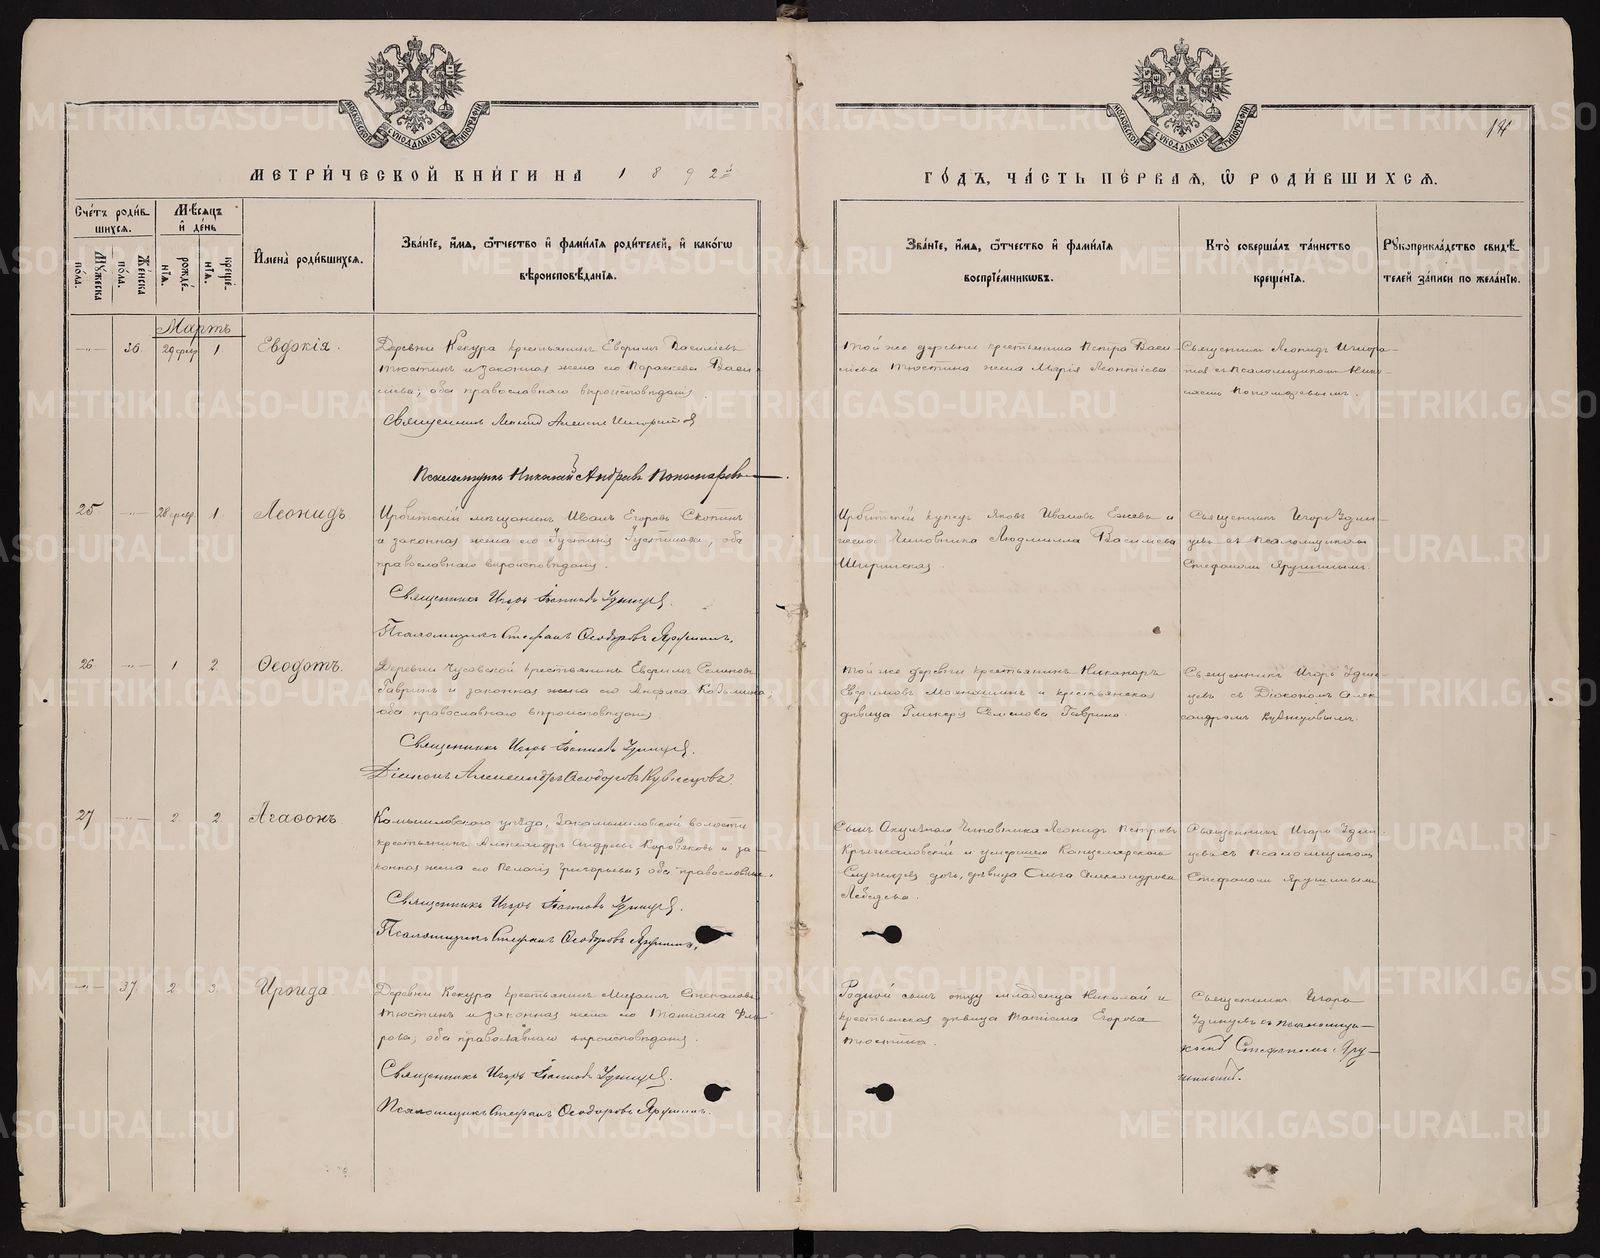 МЕТРИ́ЧЕСКОЙ КНИ́ГИ НА 1892й
ГО́ДЪ, ЧА́СТЬ ПЕ́РВАЯ, Ѡ РОДИ́ВШИХСЯ.
14
Сче́тъ роди́вшихся.
Му́жеска пола.
Же́нска по́ла.
Мѣ́сяцъ и҆ де́нь
рожде́нїѧ.
креще́нїѧ.
И҆мена̀ роди́вшихсѧ.
Зва́нїе, и҆́мѧ, ѻ҆́тчество и҆ фами́лїѧ роди́телей, и҆ како́гѡ
вѣроисповѣ́данїѧ.
Зва́нїе, и҆́мѧ, ѻ҆́тчество и҆ фами́лїѧ
воспрїе́мникѡвъ.
Кто̀ соверша́лъ та́инство
креще́нїѧ.
Рꙋкоприкла́дство свидѣ́-
телей за́писи по жела́нїю.
Мартъ
36
29 февр
1
Евдокія.
Деревни Кекура крестьянинъ Евфимъ Васильевъ
Тюстинъ и законная жена его Параскева Васи-
льева; оба православнаго вѣроисповѣданія.
Священникъ Леонид
Псаломщикъ Николай Андреевъ Пономаревъ
Той же деревни крестьянина Петра Васи-
льева Тюстина жена Марія Леонтіева
Священникъ Леонидъ Игнора-
товъ съ псаломщикомъ Нико-
лаемъ Пономаревымъ.
25
28 февр.
1
Леонидъ
Ирбитскій мѣщанинъ Иванъ Егоровъ Скопинъ
и законная жена его Іустина Іустинова, оба
православнаго вѣроисповѣданія.
Священникъ Игорь Іоанновъ Удинцев.
Псаломщикъ Стефанъ Ѳеодоровъ Ярушинъ.
Ирбитскій купецъ Яковъ Ивановъ Ежовъ и
жена Чиновника Людмилла Васильева
Ширинская.
Священникъ Игорь Удин-
цевъ съ псаломщикомъ
Стефаномъ Ярушинымъ.
26
1
2
Ѳеодотъ.
Деревни Чусовской крестьянинъ Евфимъ Семеновъ
Гавринъ и законная жена его Анфиса Козьмина;
оба православнаго вѣроисповѣданія.
Священникъ Игорь Іоанновъ Удинцев.
Діаконъ Александръ Ѳеодоровъ Кузнецовъ.
Той же деревни крестьянинъ Никаноръ
Ефимовъ и крестьянская
дѣвица Гликерія Семенова Гаврина.
Священникъ Игорь Удин-
цевъ съ Діакономъ Алек-
сандромъ Кузнецовымъ.
27
2
2
Агаѳонъ
Камышловскаго уѣзда, Закамышловской волости
крестьянинъ Александръ Андреевъ Коровяковъ и за-
конная жена его Пелагія Григорьева; оба православные.
Священникъ Игорь Іоанновъ Удинцев.
Псаломщикъ Стефанъ Ѳеодоровъ Ярушинъ.
Сынъ Чиновника Леонидъ Петровъ
и умершаго Канцелярскаго
Служителя дочь, дѣвица Ольга Александрова
Лебедева.
Священникъ Игорь Удин-
цевъ съ псаломщикомъ
Стефаномъ Ярушинымъ
37
2
3
Ираида
Деревни Кекура крестьянинъ Михаилъ Степановъ
Тюстинъ и законная жена его Татіана Фло-
рова; оба православнаго вѣроисповѣданія.
Священникъ Игорь Іоанновъ Удинцев.
Псаломщикъ Стефанъ Ѳеодоровъ Ярушинъ.
Родной сынъ отцу младенца Николай и
крестьянская дѣвица Татіана Егорова
Тюстина.
Священникъ Игорь
Удинцевъ съ псаломщи-
комъ Стефаномъ Яру-
шинымъ.